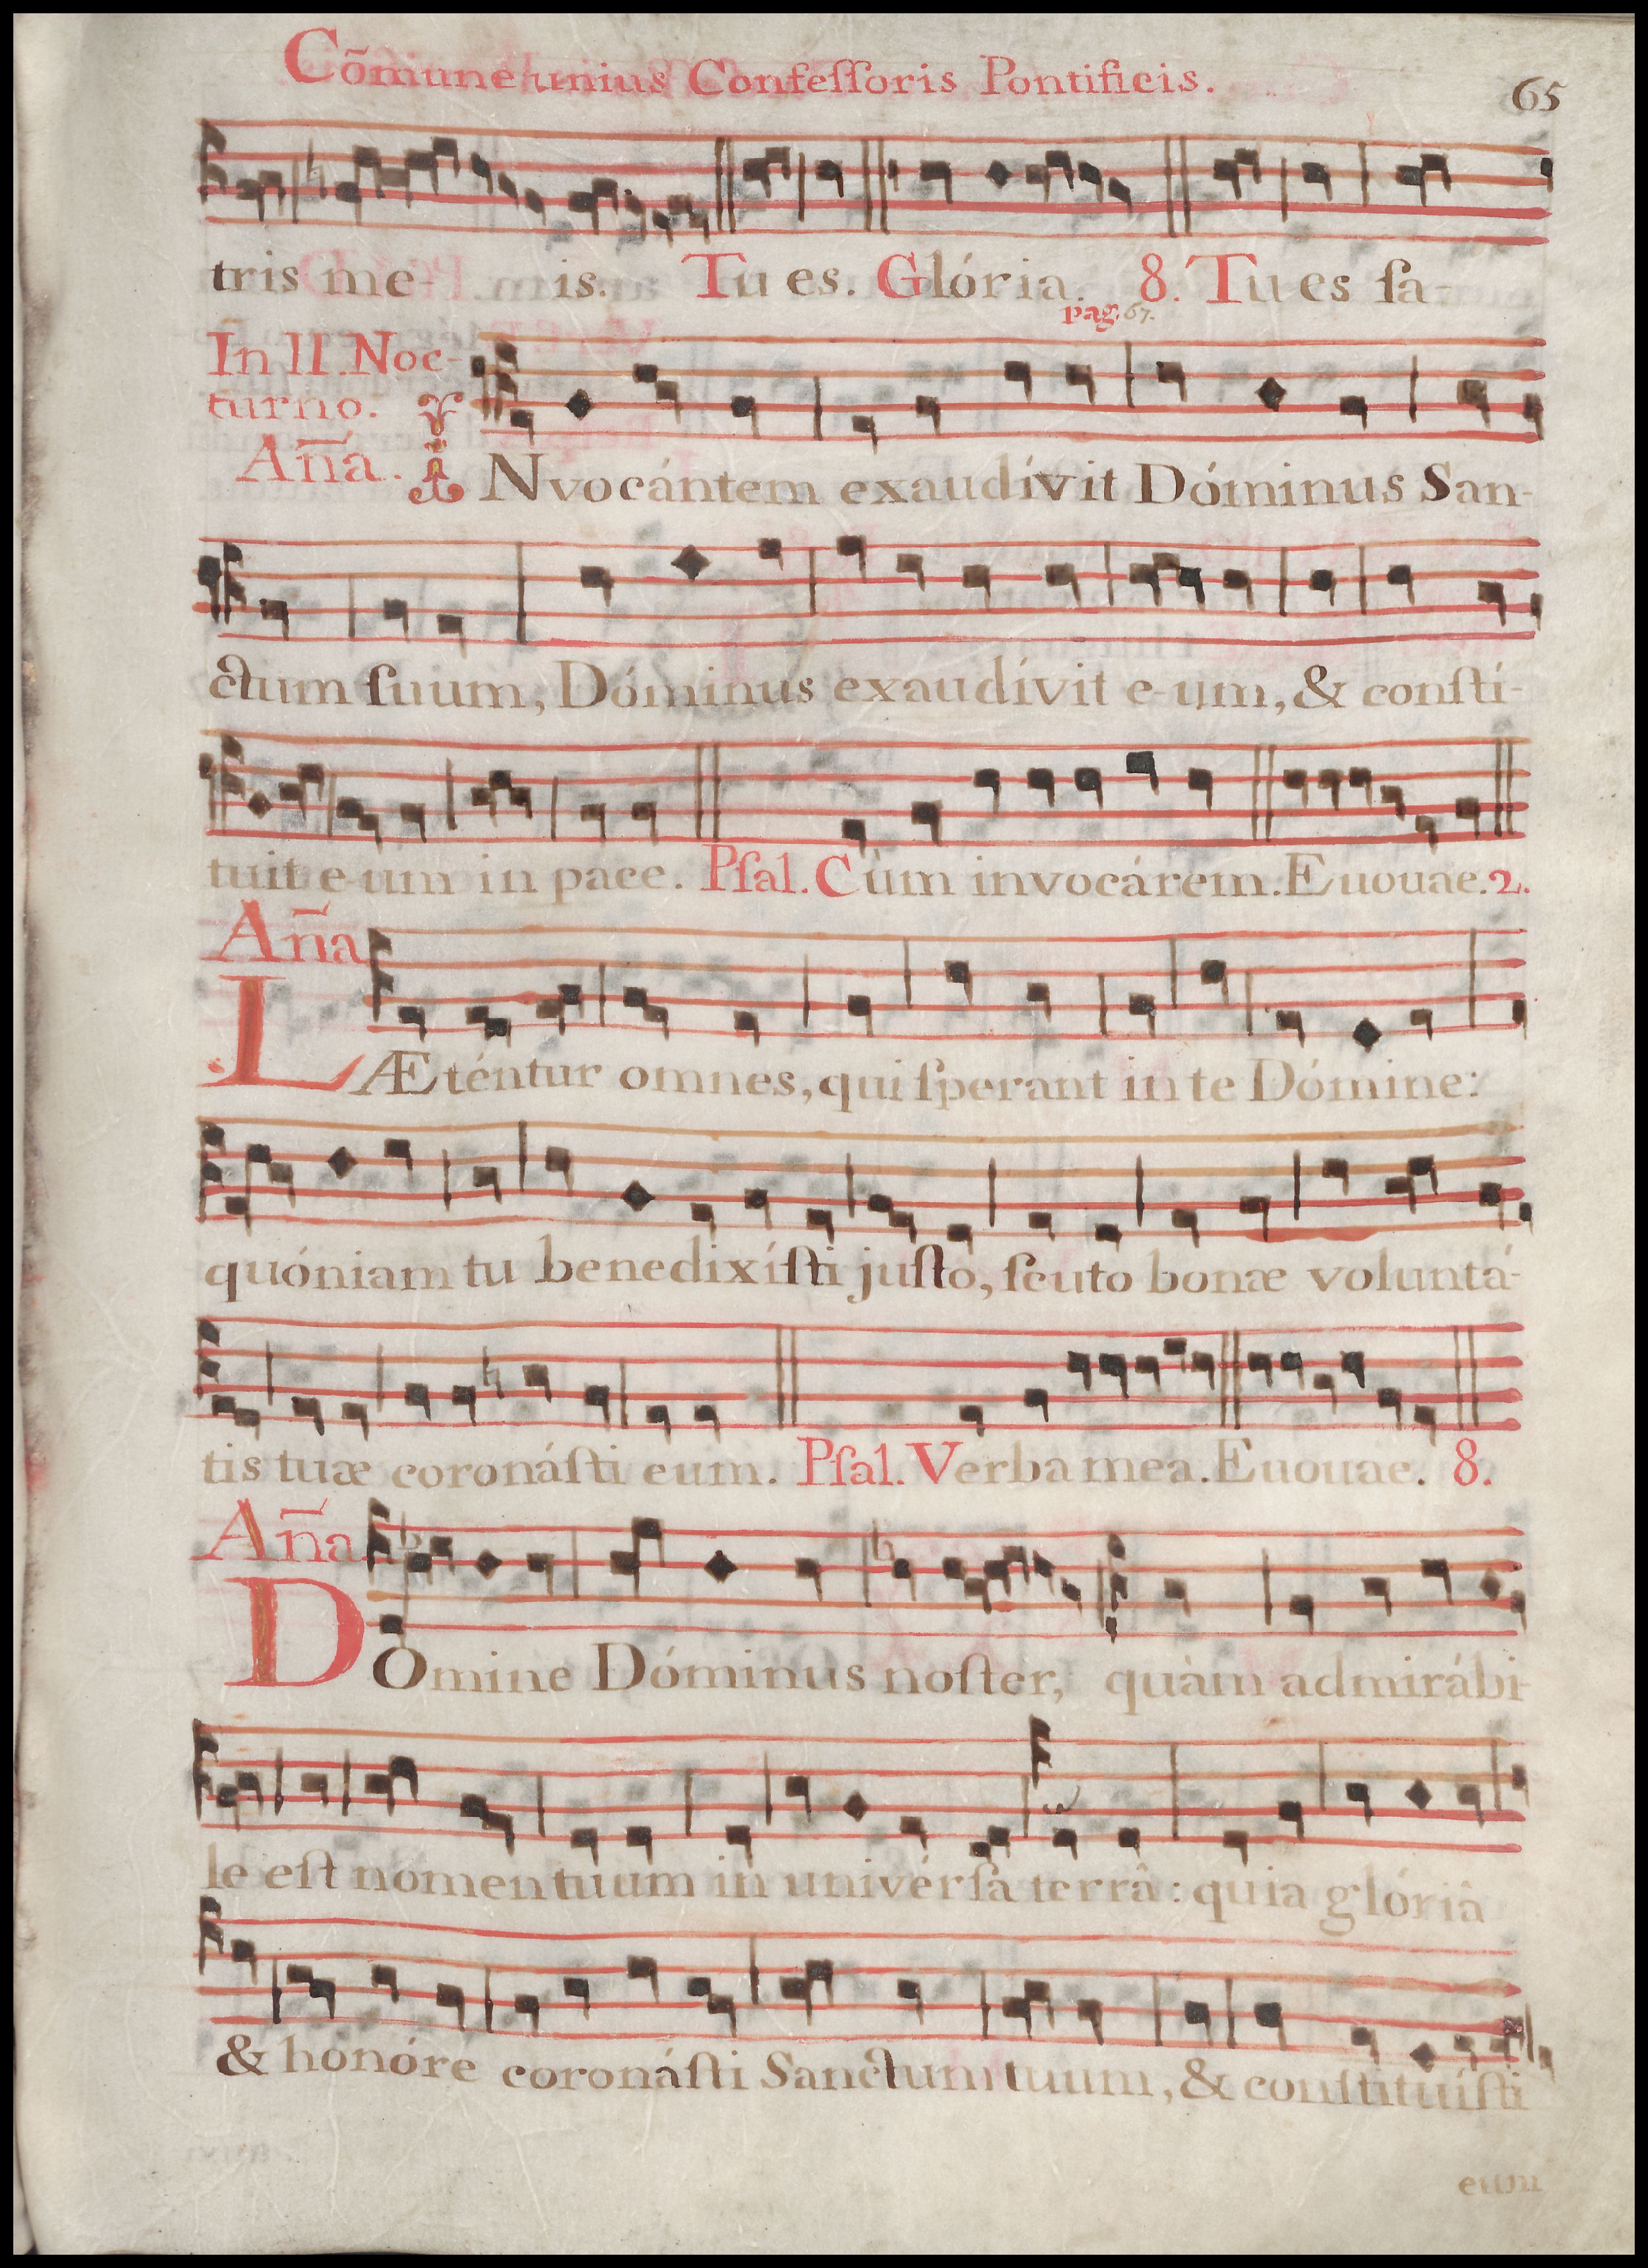 Cõmune unius Confeſſoris Pontificis.
65
tris me- is. Tu es. Glória. 8. Tu es ſa-
pag. 67.
In II. Noc-
turno.
Aña. I Nvocántem exaudívit Dóminus San-
ctum ſuum, Dóminus exaudívit e-um, & conſti-
tuit e-um in pace. Pſal. Cùm invocárem. Euouae. 2.
Aña
LÆténtur omnes, qui ſperant in te Dómine:
quóniam tu benedixíſti juſto, ſcuto bonæ voluntá-
tis tuæ coronáſti eum. Pſal. Verba mea. Euouae. 8.
Aña
DOmine Dóminus noſter, quàm admirábi-
le eſt nomen tuum in univérſa terrâ: quia glóriâ
& honóre coronáſti Sanctum tuum, & conſtituíſti
eum